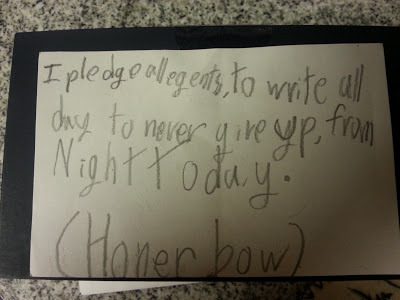 I pledge allegents, to write all
day to never give yp, from
Night To day.
(Honer bow)